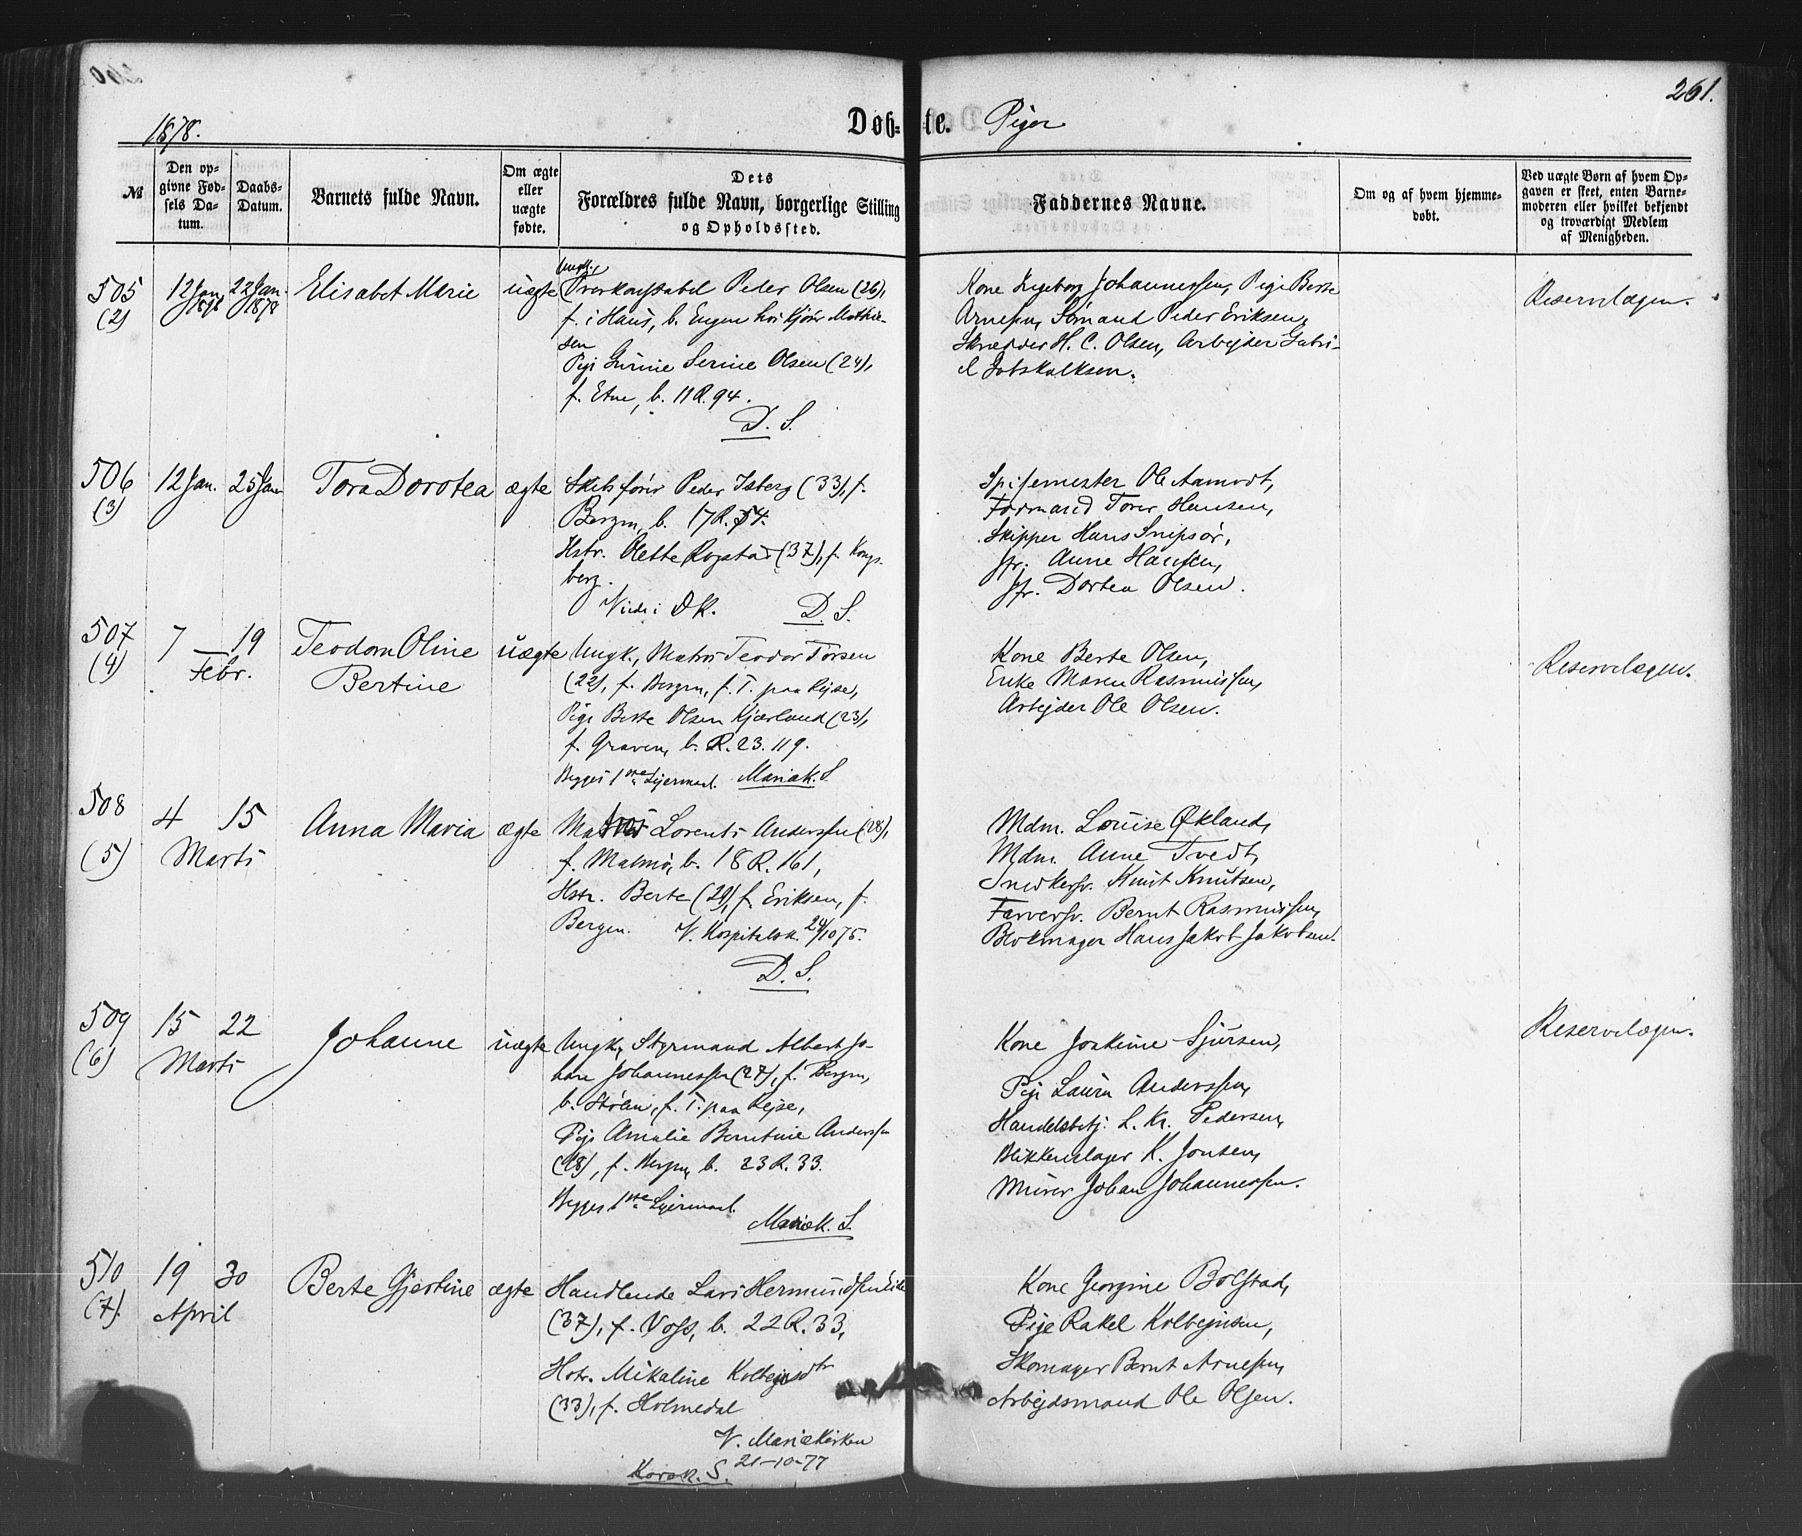 261.
1878.
Døb-te. Piger
№
Den op-
givne Fød-
sels Da-
tum.
Daabs-
Datum.
Barnets fulde Navn.
Om ægte
eller
uægte
fødte.
Dets
Forældres fulde Navn, borgerlige Stilling
og Opholdssted.
Faddernes Navne.
Om og af hvem hjemme-
døbt.
Ved uægte Børn af hvem Op-
gaven er skeet, enten Barne-
moderen eller hvilket bekjendt
og troværdigt Medlem
af Menigheden.
505
(2)
12 Jan
1878
22 Jan.
1878
Elisabet Marie
uægte
Ungk.,
Overkonstabel Peder Olsen (26),
f. i Haus, b. Engen hos Kjøbr Mathie-
sen
Pige Serine Olsen (24),
f. Etne, b. 11 R. 94.
D. S.
Kone Ingeborg Johannessen, Pige Berte
Arnesen, Sømand Peder Eriksen,
Skrædder H. C. Olsen, Arbejder Gabri-
el Gotskalksen.
Reservelægen.
506
(3)
12 Jan.
25 Jan
Tora Dorotea
ægte
Skibsfører Peder Isberg (33), f.
Bergen, b. 17 R. 54.
Hstr. Olette Rogstad (37), f. Kongs-
berg.
Viede i DK. D. S.
Spisemester Ole Aamodt,
Formand Torer Hansen,
Skipper Hans Snipsør,
Jfr. Anne Hansen,
Jfr. Dortea Olsen.
507
(4)
7 — 19
Febr.
Teodora Oline
Bertine
uægte
Ungk., Matros Teodor Torsen
(22), f. Bergen, f. T. paa Rejse,
Pige Berte Olsen Kjærland (23),
f. Graven, b. R. 23. 119.
Begges 1ste Lejermaal. Mariak. S.
Kone Berte Olsen,
Enke Maren Rasmussen,
Arbejder Ole Olsen.
Reservelægen.
508
(5)
4 15
Marts
Anna Maria
ægte
Matros Lorents Anderssen (28),
f. Malmø, b. 18 R. 161,
Hstr. Berte (29), f. Eriksen, f.
Bergen. V. Hospitalsk. 24/10 75.
D. S.
Mdm. Louise Økland,
Mdm. Anne Tvedt,
Snedkersv. Knut Knutsen,
Farversv. Bernt Rasmussen,
Blokmager Hans Jakob Jakobsen.
509
(6)
15 22
Marts
Johanne
uægte
Ungk., Styrmand Albert Jo-
han Johannessen (27), f. Bergen,
b. Stølen, f. T. paa Rejse,
Pige Amalie Berntine Anderssen
(18), f. Bergen, b. 23 R. 33.
Begges 1ste Lejermaal.
Mariæk. S.
Kone Joakime Sjursen,
Pige Laura Anderssen,
Handelsbetj. L. Kr. Pedersen,
Blikkenslager K. Jonsen,
Murer Johan Johannessen.
Reservelægen.
510
(7).
19 30
April
Berte Gjertine
ægte
Handlende Lars Hermundsen
(37), f. Voss, b. 22 R. 33,
Hstr. Mikaline Kolbeinsdtr
(33), f. Holmedal
V. Mariækirken
21-10-77
Korsk. S.
Kone Georgine Bolstad,
Pige Rakel Kolbejnsen,
Skomager Bernt Arnesen,
Arbejdsmand Ole Olsen.